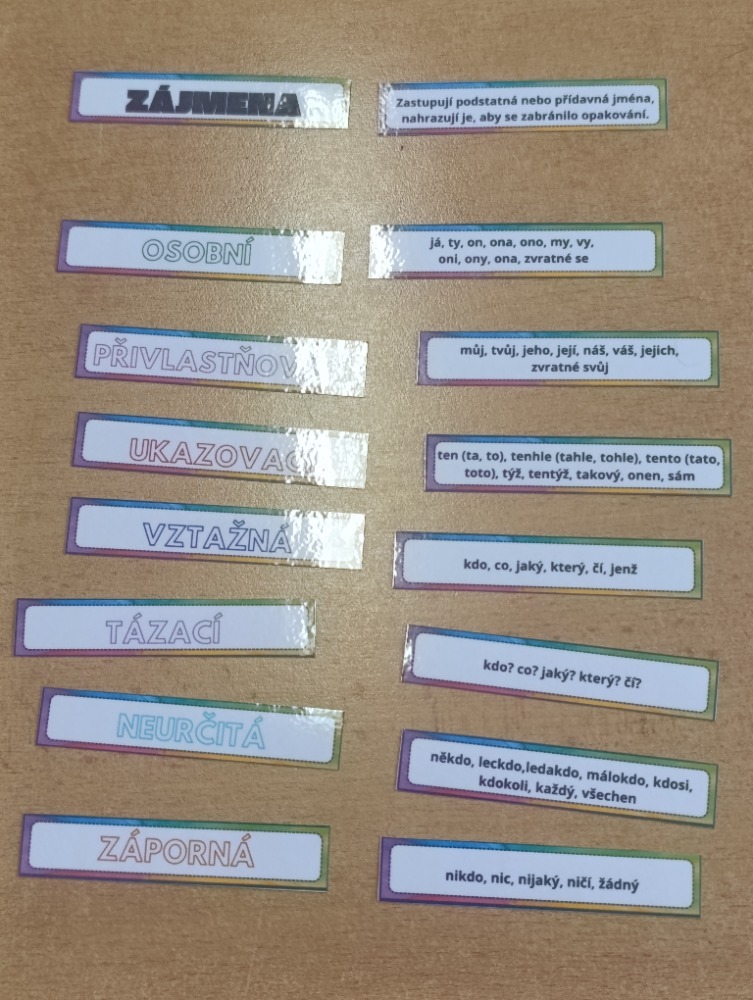 ZÁJMENA
Zastupují podstatná nebo přídavná jména,
nahrazují je, aby se zabránilo opakování.
OSOBNÍ
já, ty, on, ona, ono, my, vy,
oni, ony, ona, zvratné se
PŘIVLASTŇOV
můj, tvůj, jeho, její, náš, váš, jejich,
zvratné svůj
UKAZOVAC
ten (ta, to), tenhle (tahle, tohle), tento (tato,
toto), týž, tentýž, takový, onen, sám
VZTAŽNÁ
kdo, co, jaký, který, čí, jenž
TÁZACÍ
kdo? co? jaký? který? čí?
NEURČITÁ
někdo, leckdo,ledakdo, málokdo, kdosi,
kdokoli, každý, všechen
ZÁPORNÁ
nikdo, nic, nijaký, ničí, žádný